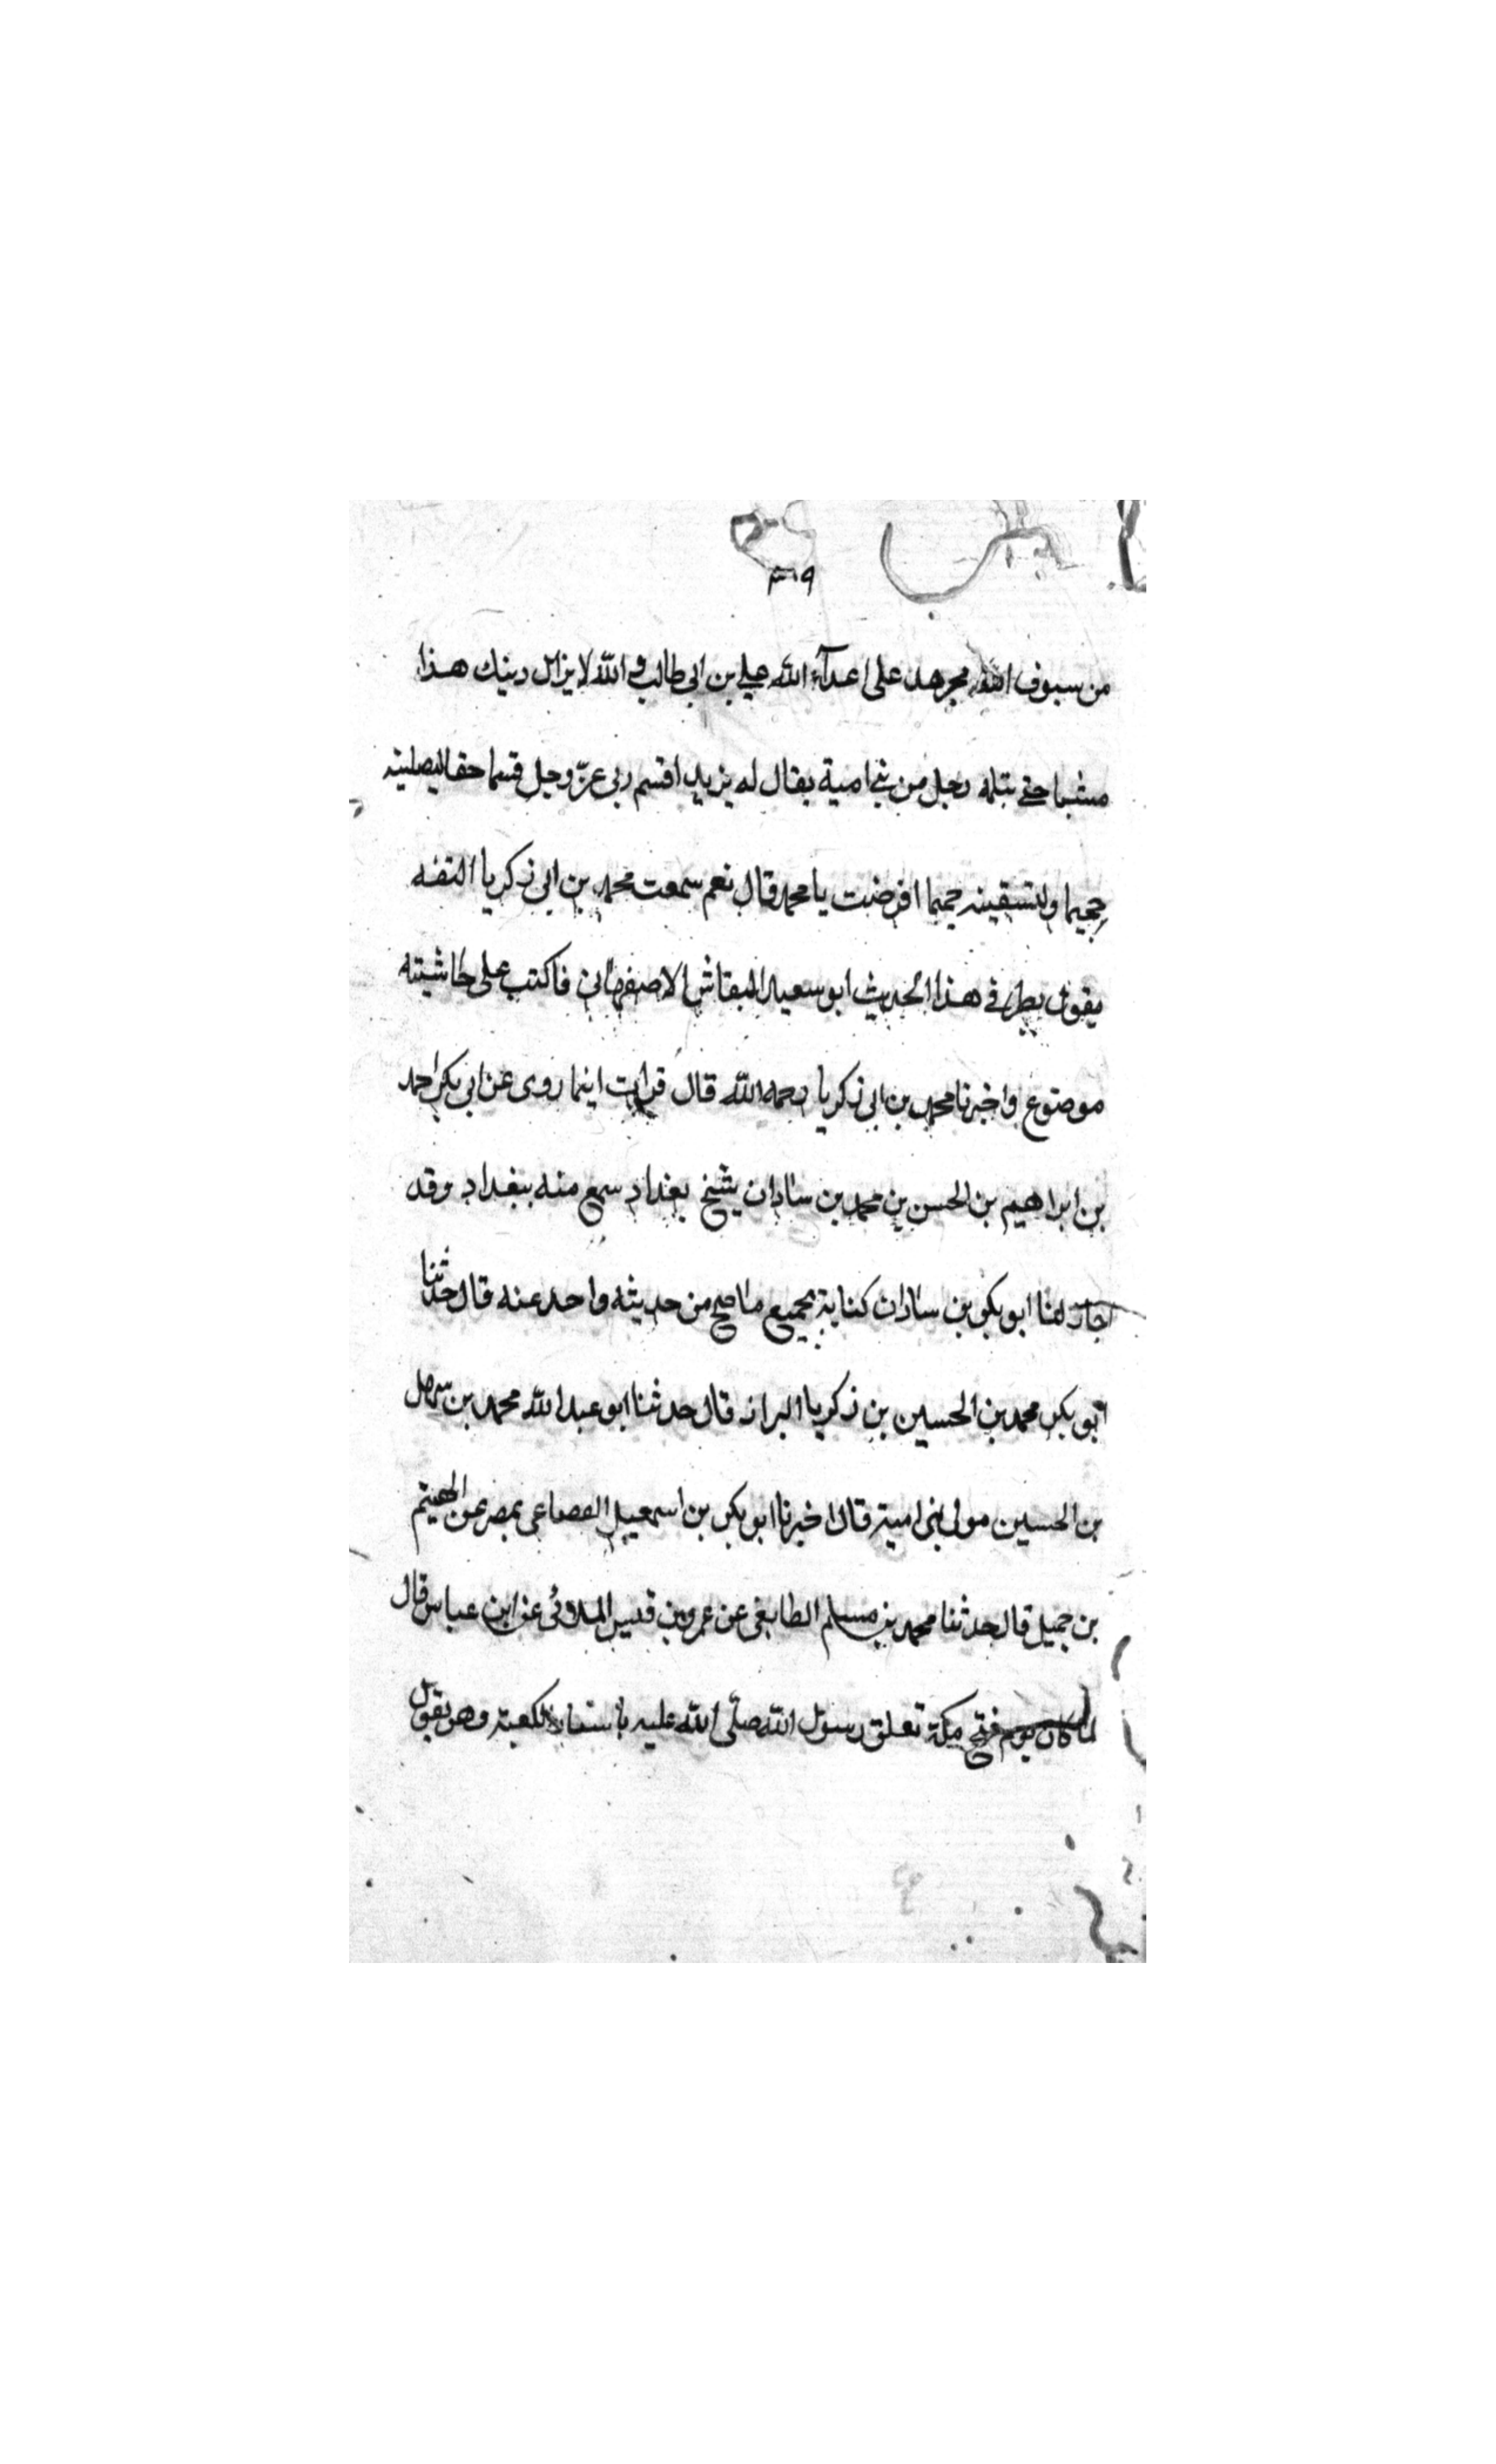 من سيوف الله مجرهد على اعدآء الله علي بن ابى طالب و الله لا يزال دينك هذا
حتى يثلمه رجل من بني امية يقال له يزيد اقسم ربى عزّ وجل قسما حقا ليصلينه
جحيما وليسقينه حميما افرضيت يا محمد قال نعم سمعت محمد بن ابى زكريا الثقفه
يقول نظر في هذا الحديث ابو سعيد النقاش الاصفهانى فاكتب على حاشيته
موضوع واخبرنا محمد بن ابى زكريا رحمه الله قال قرات ايما روى عن ابى بكر احمد
بن ابراهيم بن الحسن بن محمد بن سادان شيخ بغداد سمع منه ببغداد وقد
اجاز لهنا ابو بكر بن سادان كتابة بجميع ما صح من حديثه واحد عنه قال حدثنا
ابو بكر محمد بن الحسين بن زكريا البراز قال حدثنا ابو عبد الله محمد بن سهل
بن الحسين مولى بنى امية قال اخبرنا ابو بكر بن اسمعيل القضاعى بمصر عن الهيثم
بن جميل قال حدثنا محمد بن مسلم الطايفى عن عمرو بن قيس الملائى عن ابن عباس قال
لما كان يوم فتح مكة تعلق رسول الله صلّى الله عليه باستار الكعبة وهو يقول